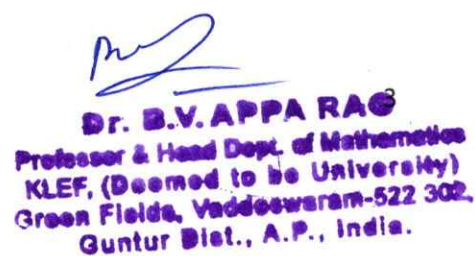 3
Dr. B.V. APPA RAO
Professor & Head Dept. of Mathematics
KLEF, (Deemed to be University)
Green Fields, Vaddeswaram-522 302,
Guntur Dist., A.P., India.